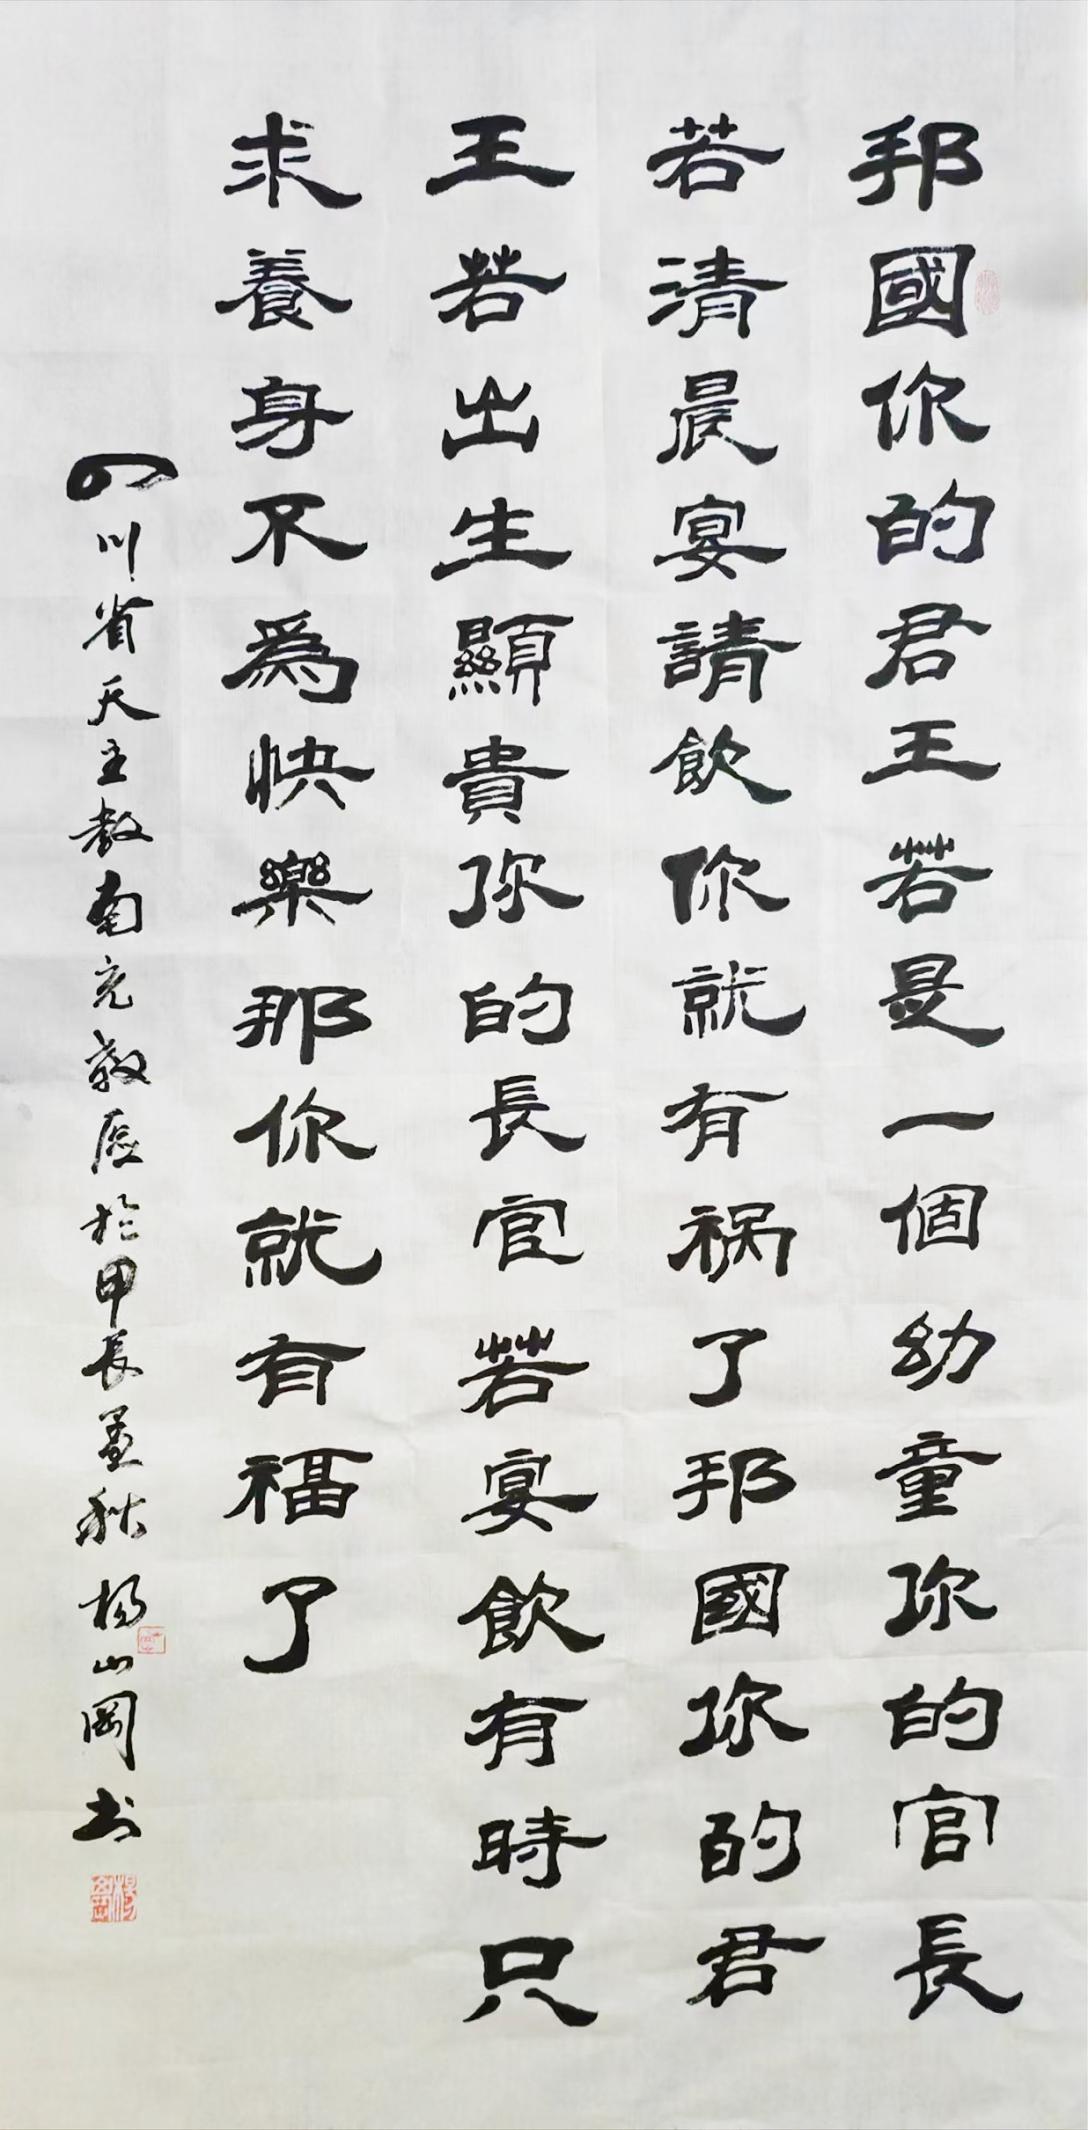 邦國你的君王若是一個幼童你的官長
若清晨宴請飲你就有祸了邦國你的君
王若出生顯貴你的長官若宴飲有時只
求養身不為快樂那你就有福了
四川省天主教南充教區於甲辰孟秋 楊山岡书